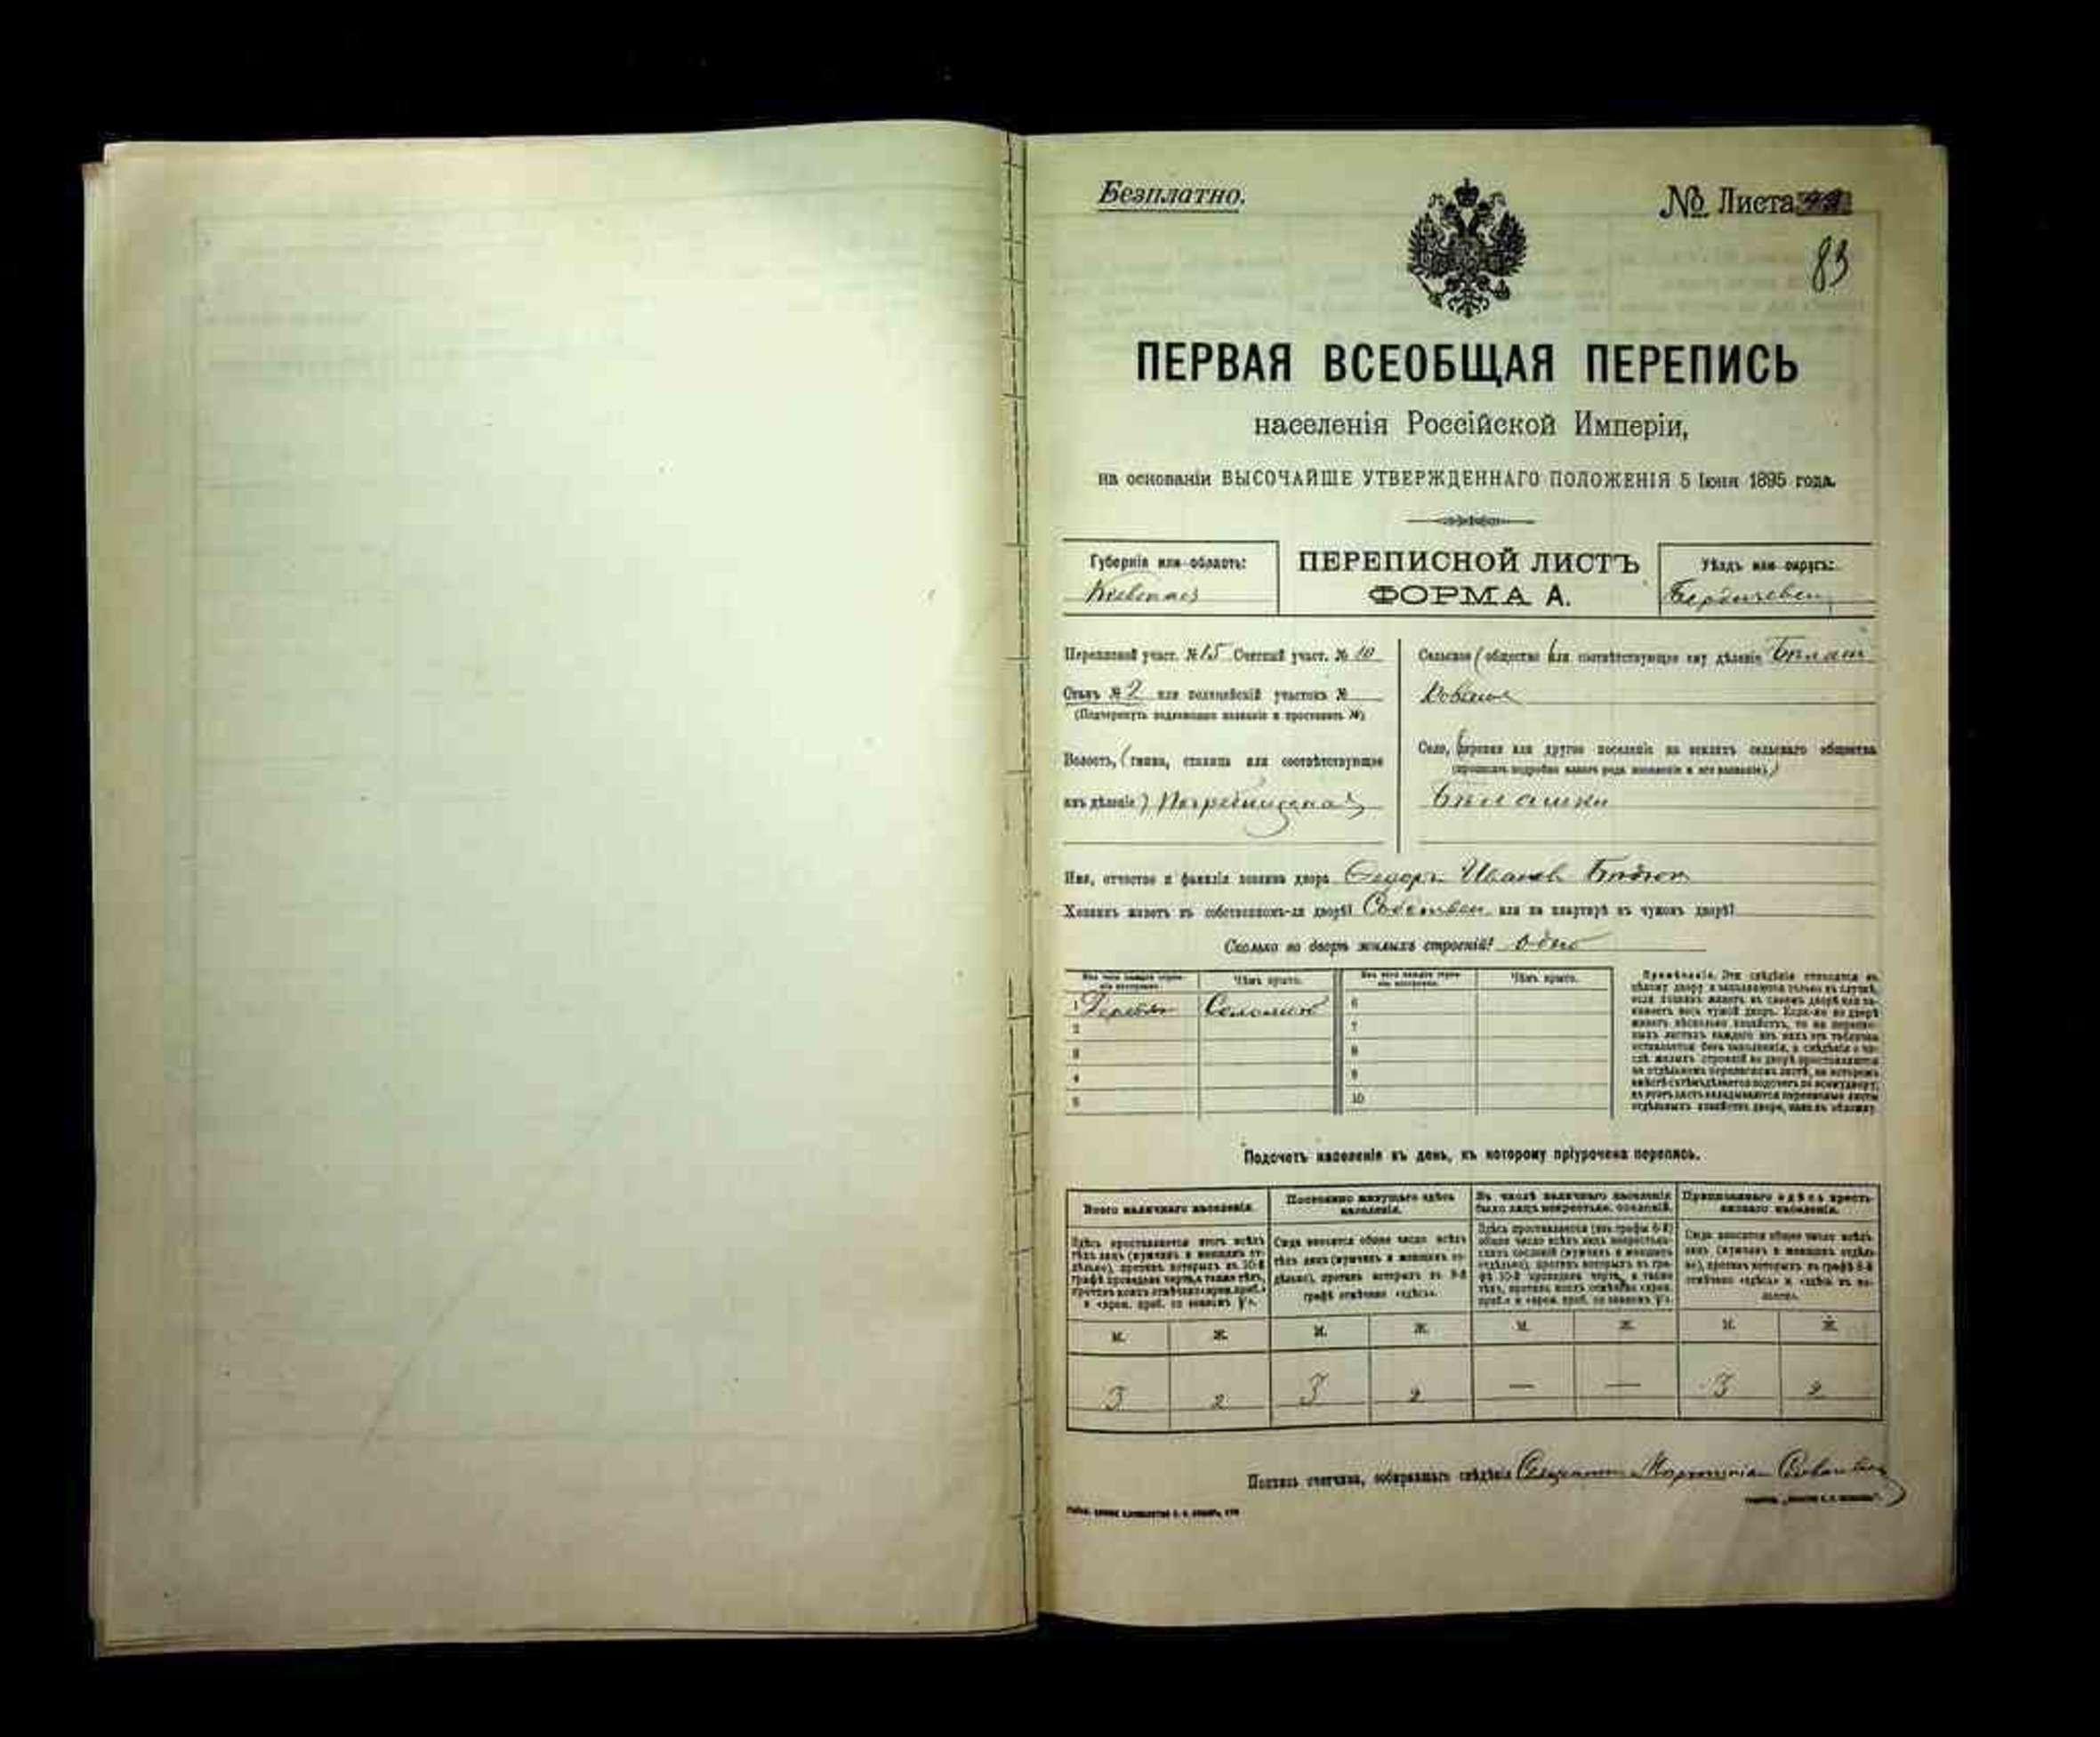 Безплатно.
№ Листа
83
ПЕРВАЯ ВСЕОБЩАЯ ПЕРЕПИСЬ
населенія Россійской Имперіи,
на основаніи ВЫСОЧАЙШЕ УТВЕРЖДЕННАГО ПОЛОЖЕНІЯ 5 Іюня 1895 года.
Губернія или область:
Киевская
ПЕРЕПИСНОЙ ЛИСТЪ
ФОРМА А.
Уѣздъ или округъ:
Бердичевск
Переписной участ. № 15 Счетный участ. № 10
Станъ № 2 или полицейскій участокъ №
(Подчеркнуть подлежащее названіе и проставить №)
Волость, (гмина, станица или соотвѣтствующее
имъ дѣленіе) Погребищенская
Сельское (общество или соотвѣтствующее ему дѣленіе
Село, (деревня или другое поселеніе на земляхъ сельскаго общества
(прописать подробно какого рода поселеніе и его названіе).)
Имя, отчество и фамилія хозяина двора Федоръ Иванов
Хозяинъ живетъ въ собственномъ-ли дворѣ? Собствен или на квартирѣ въ чужомъ дворѣ?
Сколько во дворѣ жилыхъ строеній? одно
Изъ чего каждое строеніе построено. Чѣмъ крыто. Изъ чего каждое строеніе построено. Чѣмъ крыто.
1 Деревян Соломою 6
2 7
3 8
4 9
5 10
Примѣчаніе. Эти свѣдѣнія относятся къ
цѣлому двору и заполняются только въ случаѣ,
если хозяинъ живетъ въ своемъ дворѣ или за-
нимаетъ весь чужой дворъ. Если-же во дворѣ
живетъ нѣсколько хозяйствъ, то на перепис-
ныхъ листахъ каждаго изъ нихъ эта табличка
оставляется безъ заполненія, а свѣдѣнія о чи-
слѣ жилыхъ строеній во дворѣ проставляются
на отдѣльномъ переписномъ листѣ, на которомъ
Подсчетъ населенія въ день, къ которому пріурочена перепись.
Всего наличнаго населенія.
Здѣсь проставляется итогъ всѣхъ
тѣхъ лицъ (мужчинъ и женщинъ от-
дѣльно), противъ которыхъ въ 10-й
графѣ проведена черта, а также тѣхъ,
противъ коихъ отмѣчено «врем. преб.»
Постоянно живущаго здѣсь
населенія.
Сюда вносится общее число всѣхъ
тѣхъ лицъ (мужчинъ и женщинъ от-
дѣльно), противъ которыхъ въ 9-й
графѣ отмѣчено «здѣсь».
Въ числѣ наличнаго населенія
было лицъ некрестьян. сословій.
Здѣсь проставляется (изъ графы 6-й)
общее число всѣхъ лицъ некрестьян-
скихъ сословій (мужчинъ и женщинъ
отдѣльно), противъ которыхъ въ гра-
фѣ 10-й проведена черта, а также
Приписаннаго здѣсь кресть-
янскаго населенія.
Сюда вносится общее число всѣхъ
лицъ (мужчинъ и женщинъ отдѣль-
но), противъ которыхъ въ графѣ 8-й
отмѣчено «здѣсь» и «здѣсь въ во-
лости».
М. Ж. М. Ж. М. Ж. М. Ж.
3 2 3 2 — — 3 2
Подпись счетчика, собиравшаго свѣдѣнія